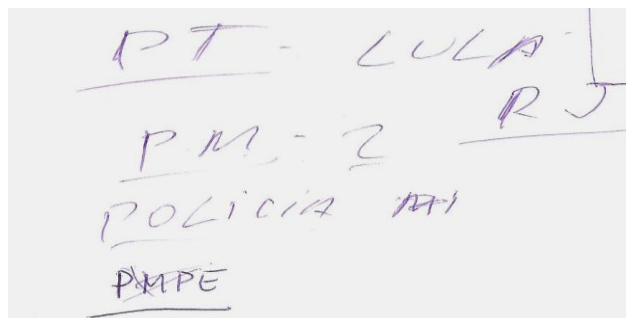 PT - LULA
RJ
PM - 2
POLICIA
PMPE